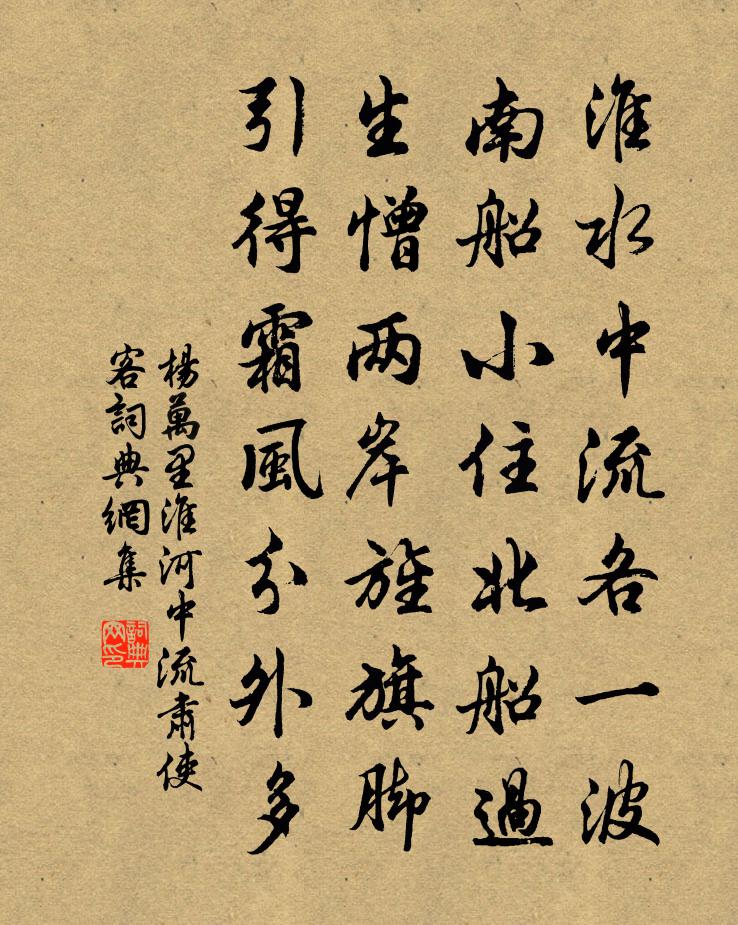 淮水中流各一波
南船小住北船過
生憎两岸旌旗脚
引得霜風分外多
楊萬里淮河中流肅使
客詞典網集
詞典
网印